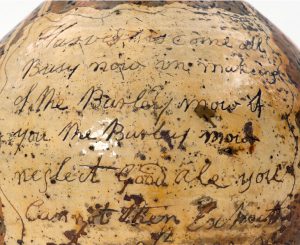 Harvis is come all
Busy now in making
of the Barley mow if
you the Barley mow
neglect Good ale you
Cannot then Expect